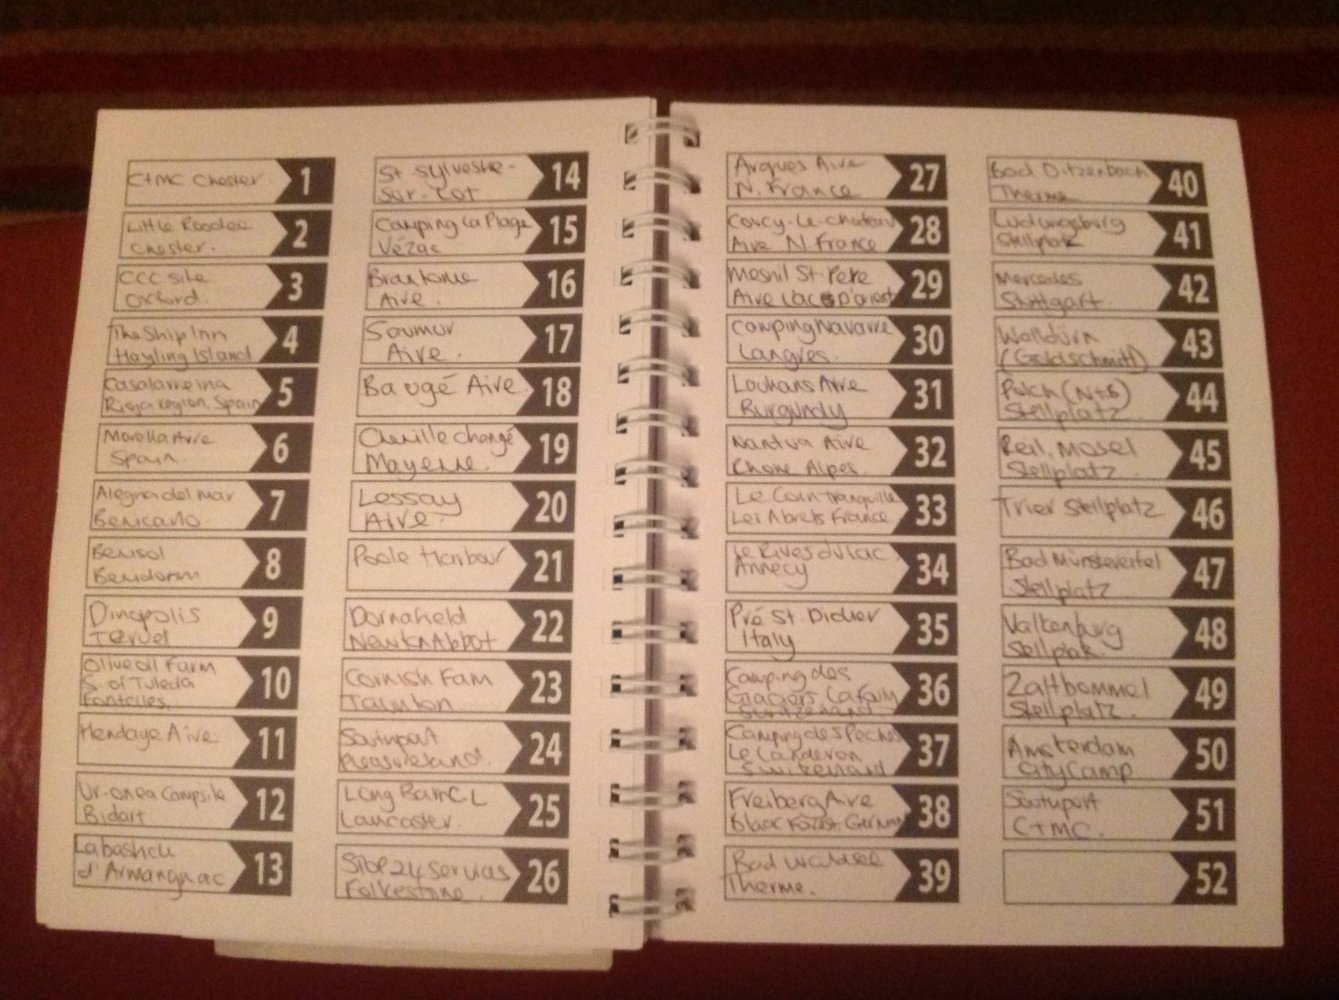 C+MC Chester 1
Little Roodee
Chester. 2
CCC site
Oxford. 3
The Ship Inn
Hayling Island 4
Casalarreina
Rioja region, Spain 5
Morella Aire
Spain. 6
Alegria del Mar
Benicarlo 7
Benisol
Benidorm 8
Dinopolis
Teruel 9
Olive oil Farm
S. of Tuleda
Fontelles. 10
Hendaye Aire 11
Ur-onea Campsite
Bidart 12
Labastide
d'Armangnac 13
St Sylvestre-
Sur-Lot 14
Camping La Plage
Vézac 15
Brantome
Aire. 16
Saumur
Aire. 17
Baugé Aire. 18
Chenille changé
Mayenne. 19
Lessay
Aire. 20
Poole Harbour 21
Dornafield
Newton Abbot 22
Cornish Farm
Taunton. 23
Southport
Pleasureland. 24
Long Barn CL
Lancaster. 25
STOP 24 Services
Folkestone. 26
Arques Aire
N. France 27
Coucy-le-chateau
Aire N. France 28
Mesnil St. Pere
Aire Lac D'orient 29
Camping Navarre
Langres. 30
Louhans Aire
Burgundy 31
Nantua Aire
Rhone Alpes. 32
Le Coin Tranquille
Les Abrets France 33
Le Rives du Lac
Annecy 34
Pré St. Didier
Italy 35
Camping des
Glaciers La Fouly
Switzerland 36
Camping des Peches
Le Landeron
Switzerland 37
Freiberg Aire
Black Forest, Germany 38
Bad Waldsee
Therme. 39
Bad Ditzenbach
Therme 40
Ludwigsburg
Stellplatz 41
Mercedes
Stuttgart. 42
Walldürn
(Goldschmitt) 43
Polch (N+B)
Stellplatz. 44
Reil, Mosel
Stellplatz. 45
Trier Stellplatz 46
Bad Münstereifel
Stellplatz. 47
Valkenburg
Stellplatz. 48
Zaltbommel
Stellplatz. 49
Amsterdam
City Camp 50
Southport
C+MC. 51
52